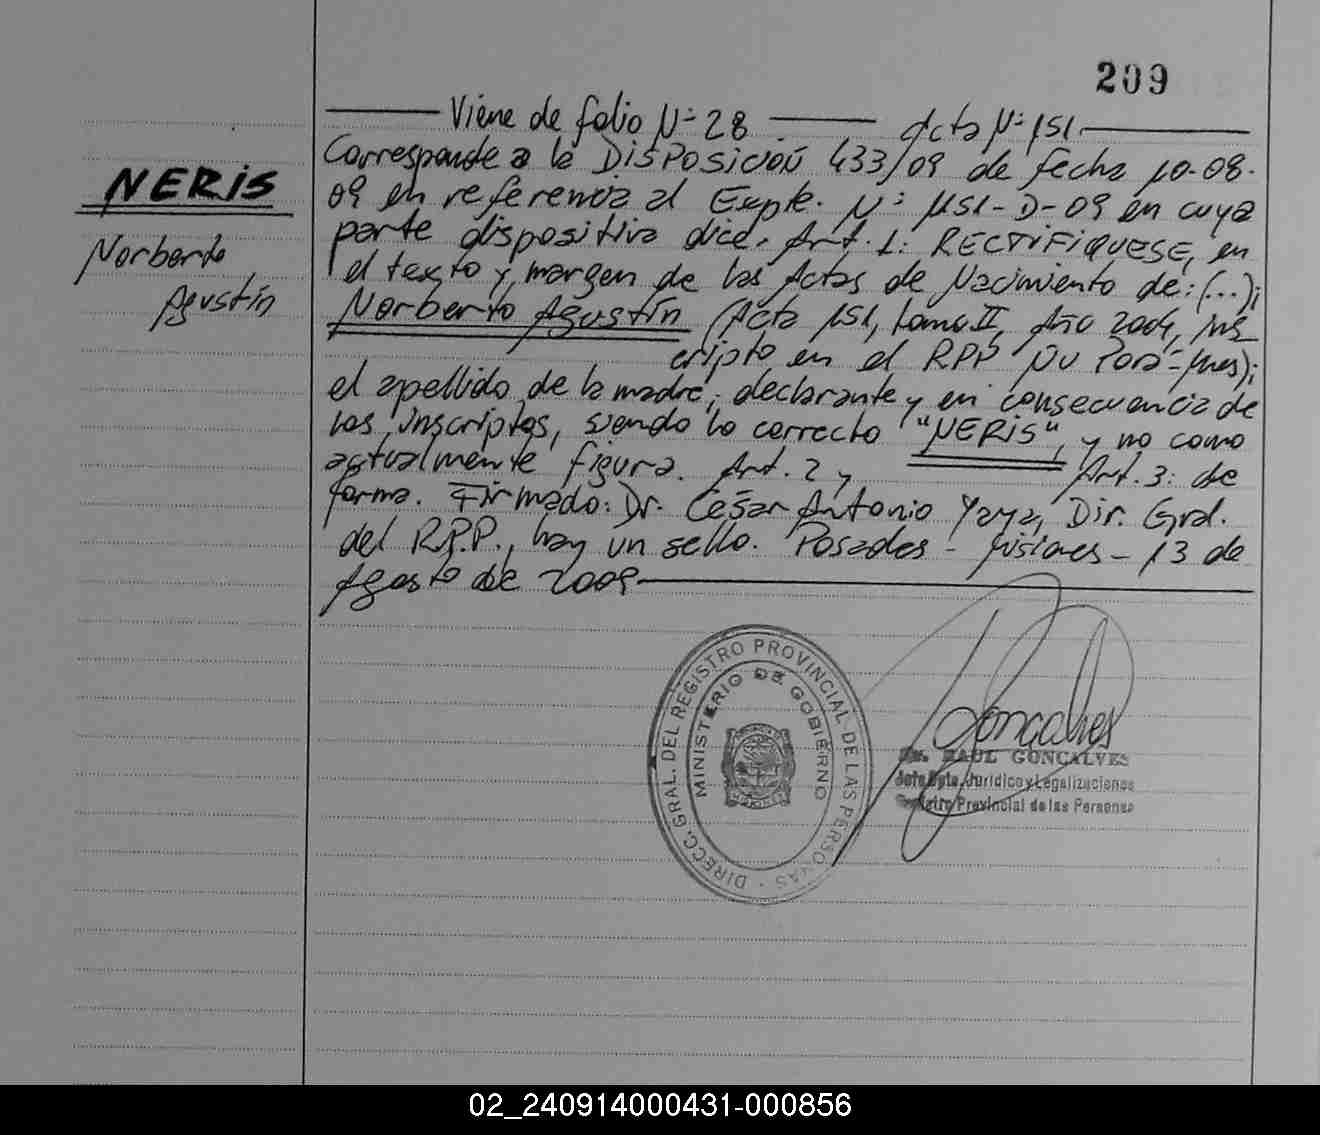 209
Viene de folio Nº 28 Acta Nº 151
NERIS
Norberto
Agustín
Corresponde a la DISPOSICIÓN 433/09 de fecha 10-08-
09 en referencia al Expte. Nº 1151-D-09 en cuya
parte dispositiva dice. Art. 1: RECTIFIQUESE, en
el texto y margen de las Actas de Nacimiento de: (...);
Norberto Agustín (Acta 151, tomo II, Año 2004, ins
cripto en el RPP
el apellido de la madre, declarante y en consecuencia de
los inscriptos, siendo lo correcto "NERIS", y no como
actualmente figura. Art. 2 y Art. 3: de
forma. Firmado: Dr. César Antonio Yaya, Dir. Gral.
del R.P.P., hay un sello. Posadas - Misiones - 13 de
Agosto de 2009
DIRECC. GRAL. DEL REGISTRO PROVINCIAL DE LAS PERSONAS
MINISTERIO DE GOBIERNO
MISIONES
Goncalves
RAUL GONCALVES
Jefe Dpto. Jurídico y Legalizaciones
Registro Provincial de las Personas
02_240914000431-000856